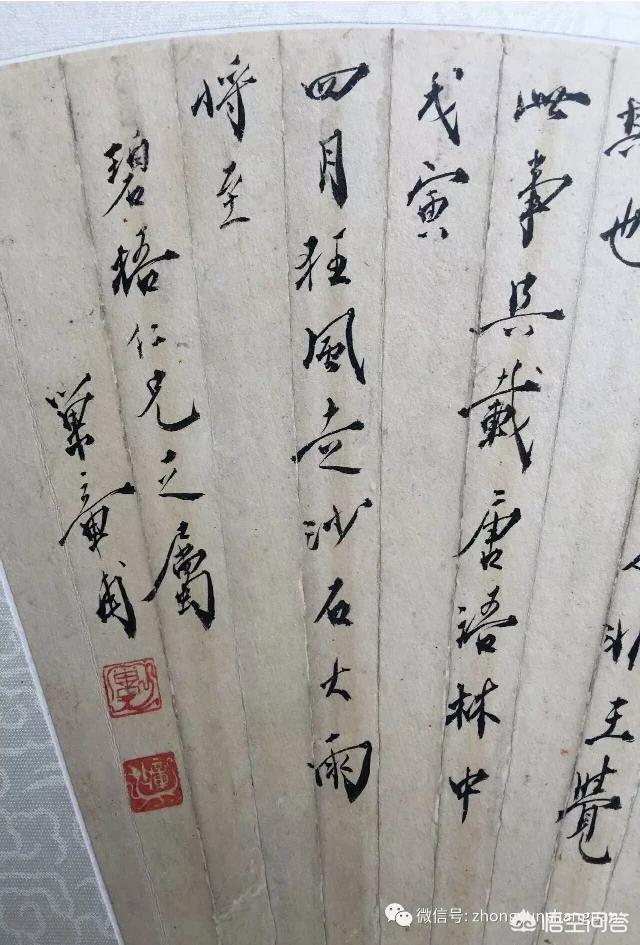 其也
非王覺
此事具載唐語林中
戊寅
四月狂風走沙石大雨
將至
碧梧仁兄之屬
巢章甫
微信号:
悟空问答